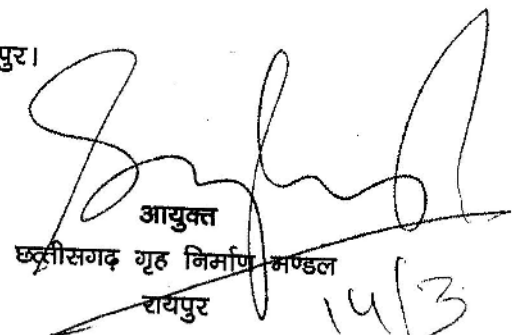 पुर।
आयुक्त
छत्तीसगढ़ गृह निर्माण मण्डल
रायपुर
14/3